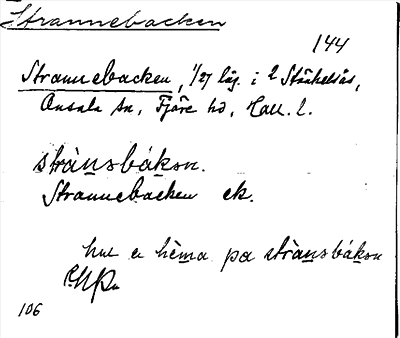 Strannebacken
144
Strannebacken, 1/27 läg. i 2 Stähelsås,
Onsala sn, Fjäre hd, Hall. l.
strànsbákon.
Strannebacken ek.
hur e hèma pa strànsbákon
106